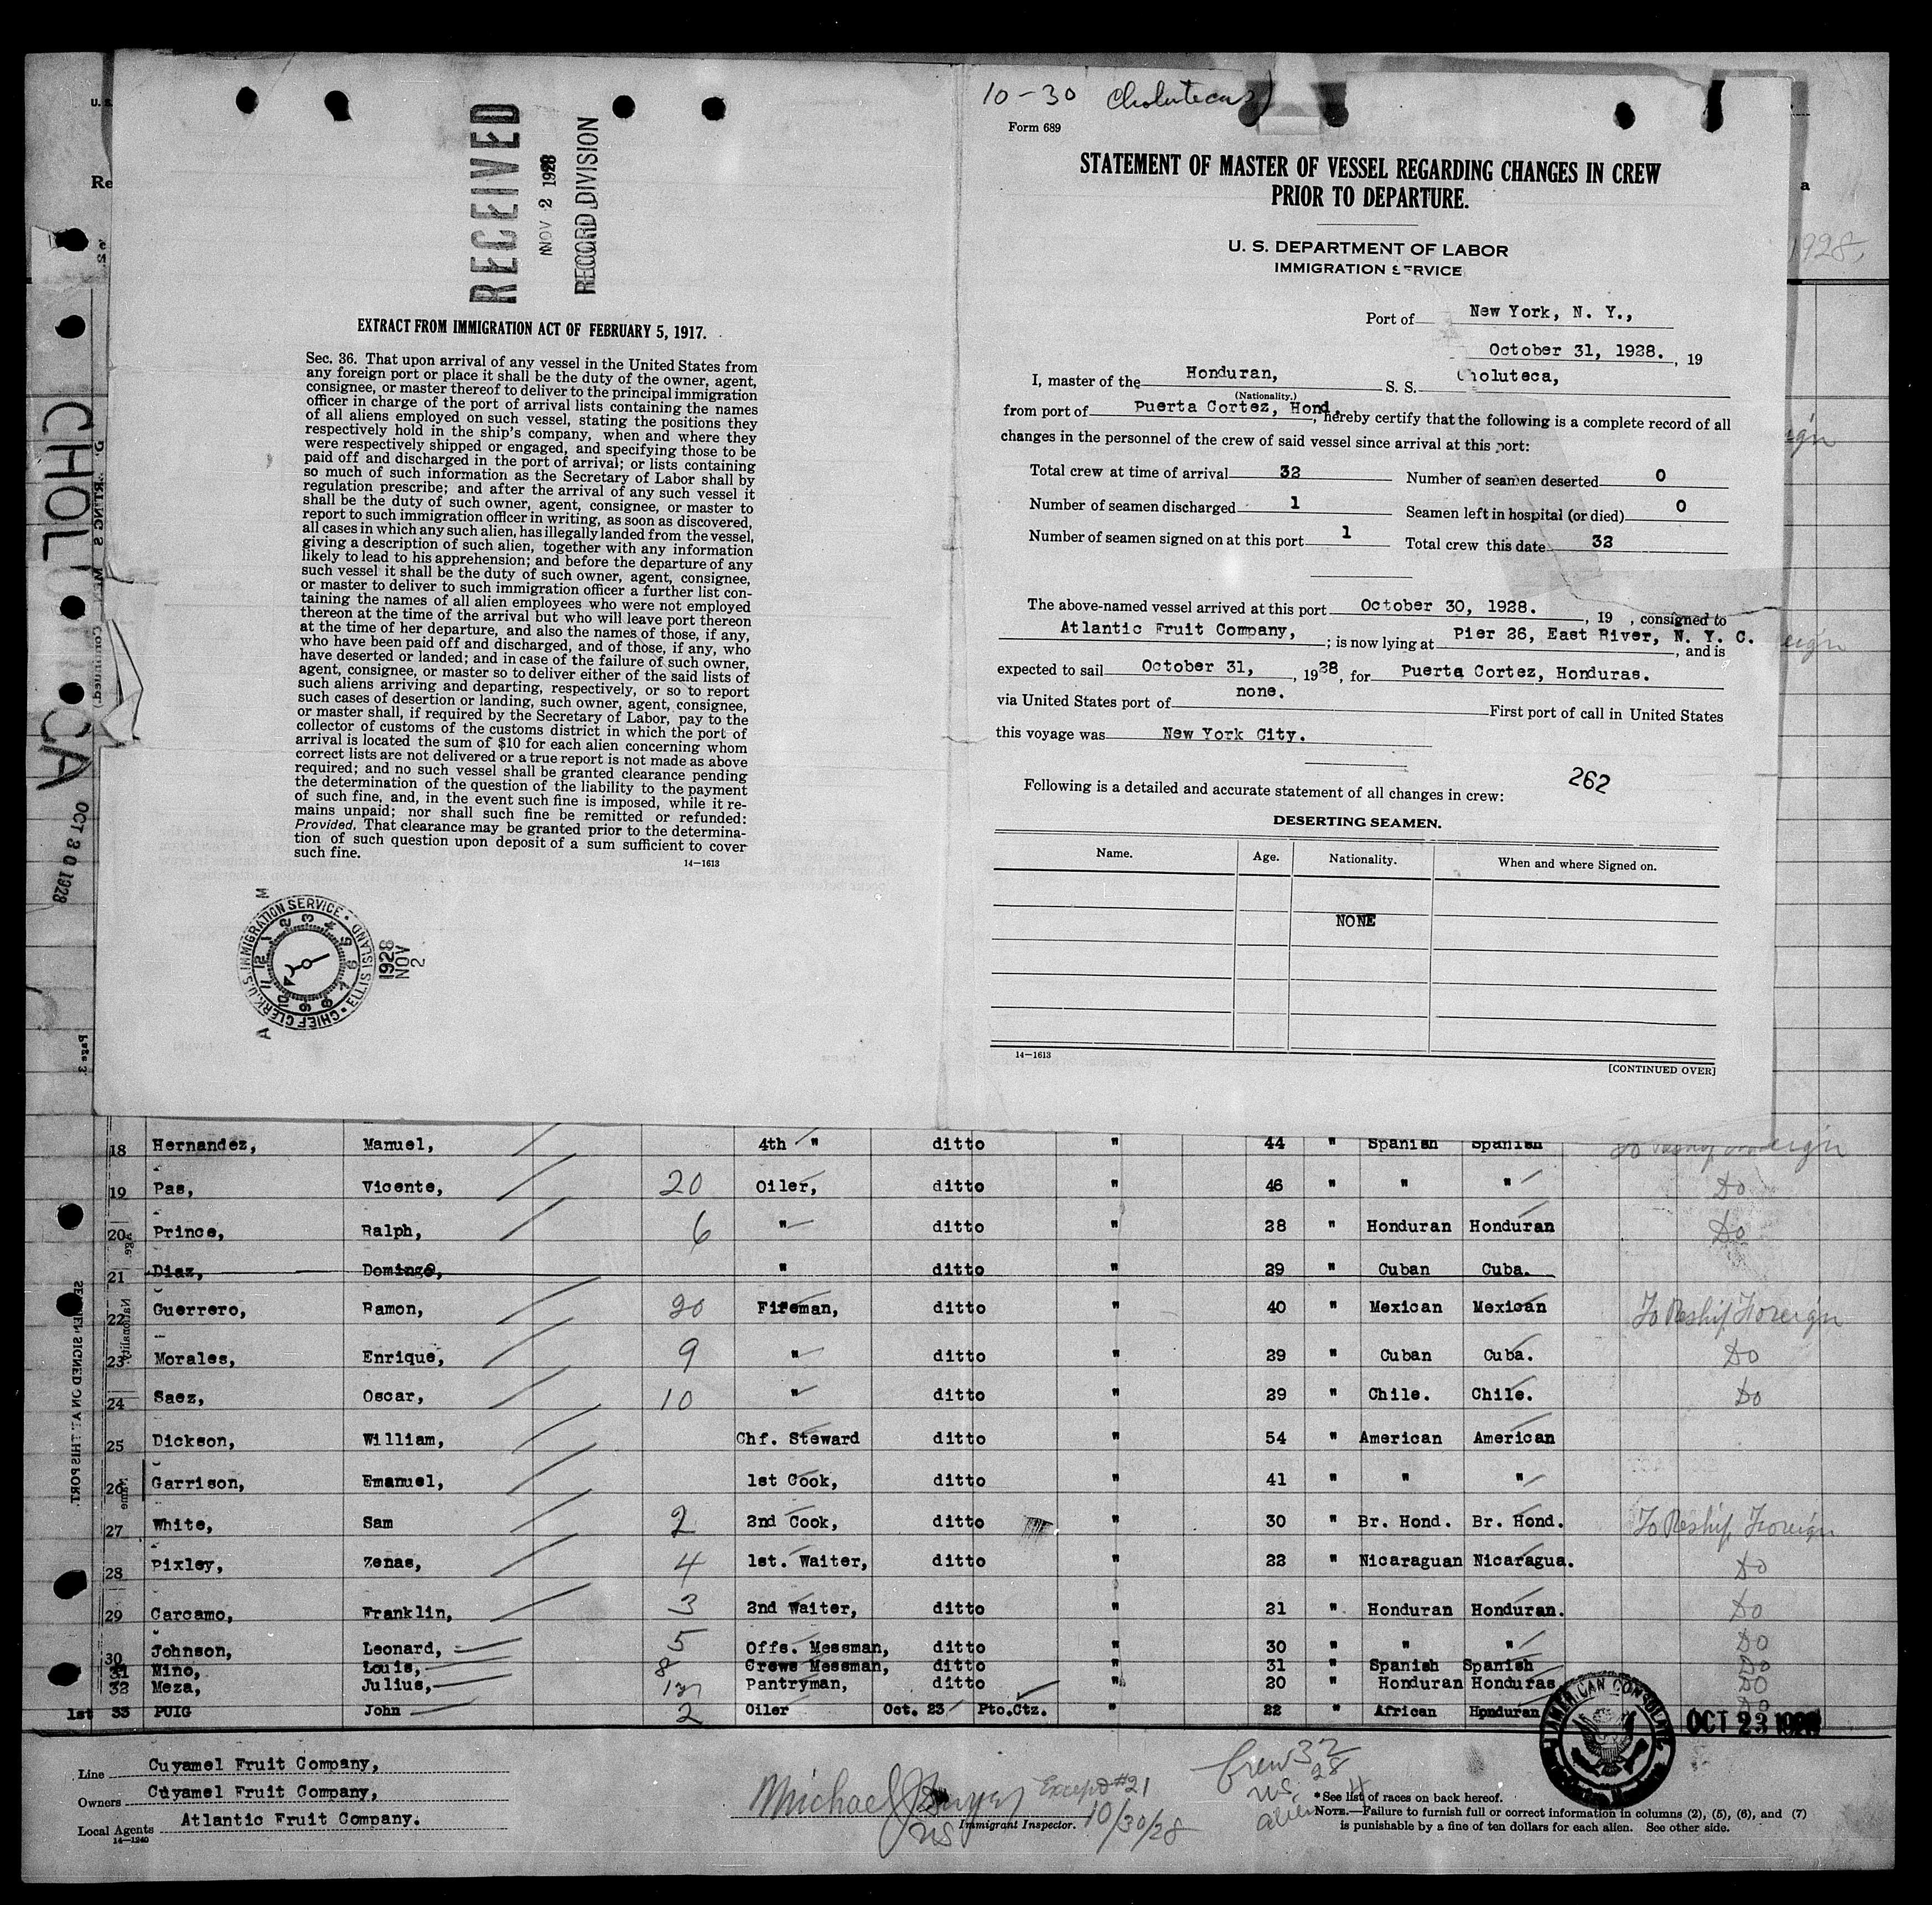 RECEIVED
NOV 2 1928
RECORD DIVISION
EXTRACT FROM IMMIGRATION ACT OF FEBRUARY 5, 1917.
Sec. 36. That upon arrival of any vessel in the United States from
any foreign port or place it shall be the duty of the owner, agent,
consignee, or master thereof to deliver to the principal immigration
officer in charge of the port of arrival lists containing the names
of all aliens employed on such vessel, stating the positions they
respectively hold in the ship's company, when and where they
were respectively shipped or engaged, and specifying those to be
paid off and discharged in the port of arrival; or lists containing
so much of such information as the Secretary of Labor shall by
regulation prescribe; and after the arrival of any such vessel it
shall be the duty of such owner, agent, consignee, or master to
report to such immigration officer in writing, as soon as discovered,
all cases in which any such alien, has illegally landed from the vessel,
giving a description of such alien, together with any information
likely to lead to his apprehension; and before the departure of any
such vessel it shall be the duty of such owner, agent, consignee,
or master to deliver to such immigration officer a further list con-
taining the names of all alien employees who were not employed
thereon at the time of the arrival but who will leave port thereon
at the time of her departure, and also the names of those, if any, who
have been paid off and discharged, and of those, if any, who
have deserted or landed; and in case of the failure of such owner,
agent, consignee, or master so to deliver either of the said lists of
such aliens arriving and departing, respectively, or so to report
such cases of desertion or landing, such owner, agent, consignee,
or master shall, if required by the Secretary of Labor, pay to the
collector of customs of the customs district in which the port of
arrival is located the sum of $10 for each alien concerning whom
correct lists are not delivered or a true report is not made as above
required; and no such vessel shall be granted clearance pending
the determination of the question of the liability to the payment
of such fine, and, in the event such fine is imposed, while it re-
mains unpaid; nor shall such fine be remitted or refunded:
Provided, That clearance may be granted prior to the determina-
tion of such question upon deposit of a sum sufficient to cover
such fine.
14—1613
CHIEF CLERK, U.S. IMMIGRATION SERVICE · ELLIS ISLAND
1928 NOV 2
10-30
Form 689
STATEMENT OF MASTER OF VESSEL REGARDING CHANGES IN CREW
PRIOR TO DEPARTURE.
U. S. DEPARTMENT OF LABOR
IMMIGRATION SERVICE
Port of New York, N. Y.,
October 31, 1928. , 19
I, master of the Honduran, S. S. Choluteca,
(Nationality.)
from port of Puerta Cortez, Hond., hereby certify that the following is a complete record of all
changes in the personnel of the crew of said vessel since arrival at this port:
Total crew at time of arrival 32 Number of seamen deserted 0
Number of seamen discharged 1 Seamen left in hospital (or died) 0
Number of seamen signed on at this port 1 Total crew this date 32
The above-named vessel arrived at this port October 30, 1928. , 19 , consigned to
Atlantic Fruit Company, ; is now lying at Pier 26, East River, N. Y. C. , and is
expected to sail October 31, , 1928, for Puerta Cortez, Honduras.
via United States port of none. First port of call in United States
this voyage was New York City.
262
Following is a detailed and accurate statement of all changes in crew:
DESERTING SEAMEN.
Name. Age. Nationality. When and where Signed on.
NONE
14—1613
[CONTINUED OVER]
OCT 30 1928
Page 3
18 Hernandez, Manuel, 4th " ditto " 44 " Spanish Spanish
19 Pas, Vicente, 20 Oiler, ditto " 46 " " " Do
20 Prince, Ralph, 6 " ditto " 28 " Honduran Honduran Do
21 Diaz, Domingo, " ditto " 29 " Cuban Cuba.
22 Guerrero, Ramon, 20 Fireman, ditto " 40 " Mexican Mexican To Reship Foreign
23 Morales, Enrique, 9 " ditto " 29 " Cuban Cuba. Do
24 Saez, Oscar, 10 " ditto " 29 " Chile. Chile. Do
25 Dickson, William, Chf. Steward ditto " 54 " American American
26 Garrison, Emanuel, 1st Cook, ditto " 41 " " "
27 White, Sam 2 2nd Cook, ditto " 30 " Br. Hond. Br. Hond. To Reship Foreign
28 Pixley, Zenas, 4 1st. Waiter, ditto " 22 " Nicaraguan Nicaragua. Do
29 Carcamo, Franklin, 3 2nd Waiter, ditto " 21 " Honduran Honduran. Do
30 Johnson, Leonard, 5 Offs. Messman, ditto " 30 " " " Do
31 Mino, Louis, 8 Crews Messman, ditto " 31 " Spanish Spanish Do
32 Meza, Julius, Pantryman, ditto " 20 " Honduran Honduras Do
1st 33 PUIG John 2 Oiler Oct. 23 Pto.Ctz. " 22 " African Honduran Do
AMERICAN CONSULATE
OCT 23 1928
Line Cuyamel Fruit Company,
Owners Cuyamel Fruit Company,
Local Agents Atlantic Fruit Company.
14—1240
Michael J. Except #21
Immigrant Inspector. 10/30/28
Crew 32
US. 28
alien 4
* See list of races on back hereof.
NOTE.—Failure to furnish full or correct information in columns (2), (5), (6), and (7)
is punishable by a fine of ten dollars for each alien. See other side.